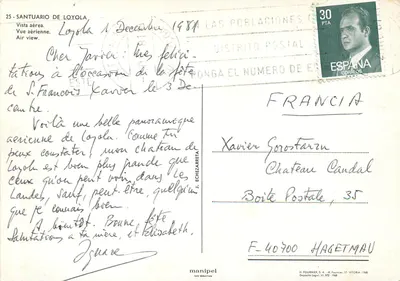 25 - SANTUARIO DE LOYOLA
Vista aérea.
Vue aérienne.
Air view.
Loyola 1 Décembre 1981
Cher Javier: mes félici-
tations à l'occasion de la fête
de S. François Xavier le 3 Dé-
cembre.
Voilà une belle panoramique
aérienne de Loyola. Comme tu
peux constater, mon château de
Loyola est bien plus grande que
ceux qu'on peut voir dans les
Landes, sauf, peut-être, quelqu'un
que je connais bien.
A bientôt. Bonne fête
Salutations a ta mère, et Elisabeth.
Ignace
J. ECHEZARRETA
LAS POBLACIONES
DISTRITO POSTAL
PONGA EL NUMERO DE
30
PTA
ESPAÑA
CORREOS
FRANCIA
Xavier Gorostarzu
Chateau Candal
Boite Postale, 35
F-40700 HAGETMAU
manipel